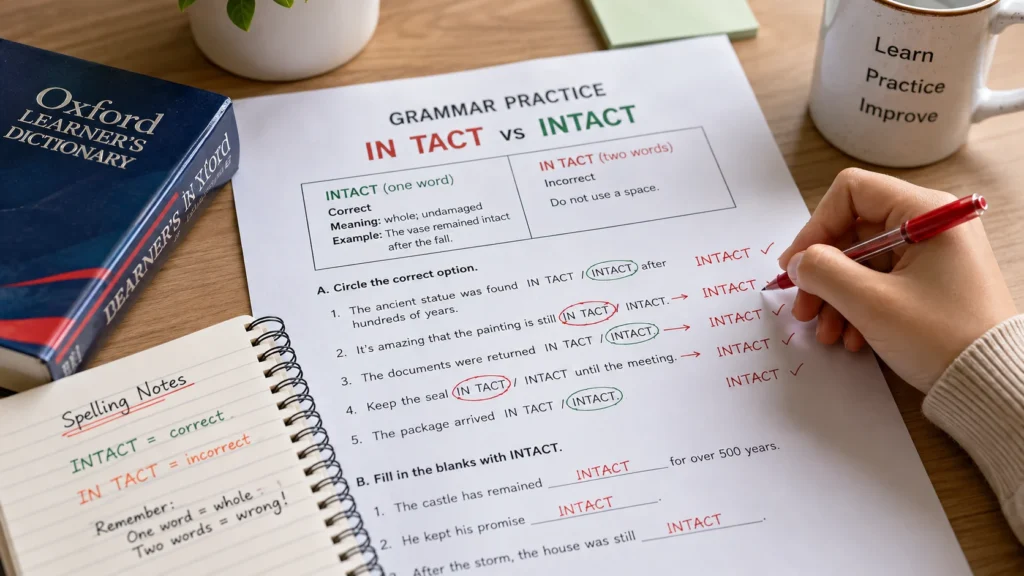 Oxford
LEARNER'S
DICTIONARY
GRAMMAR PRACTICE
IN TACT vs INTACT
INTACT (one word)
Correct
Meaning: whole; undamaged
Example: The vase remained intact
after the fall.
IN TACT (two words)
Incorrect
Do not use a space.
A. Circle the correct option.
1. The ancient statue was found IN TACT / INTACT. after
hundreds of years.
INTACT ✓
2. It's amazing that the painting is still IN TACT / INTACT. → INTACT
3. The documents were returned IN TACT / INTACT. → INTACT ✓
4. Keep the seal IN TACT / INTACT until the meeting. → INTACT ✓
5. The package arrived IN TACT / INTACT.
INTACT ✓
B. Fill in the blanks with INTACT.
1. The castle has remained INTACT for over 500 years.
2. He kept his promise INTACT.
3. After the storm, the house was still INTACT.
Spelling Notes
INTACT = correct
IN TACT = incorrect
Remember:
One word = whole
Two words = wrong!
Learn
Practice
Improve